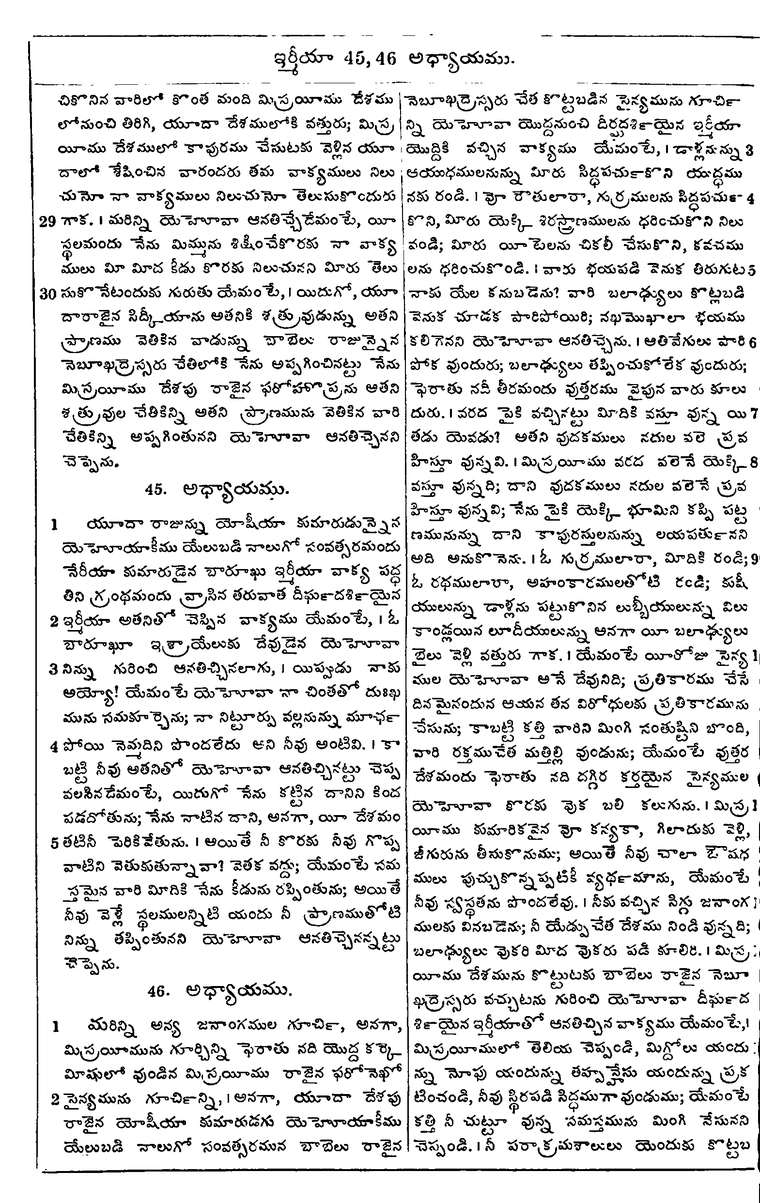 ఇర్మీయా 45, 46 అధ్యాయము.
చికొనిన వారిలో కొంత మంది మిస్రయీము దేశము
లోనుంచి తిరిగి, యూదా దేశములోకి వత్తురు; మిస్ర
యీము దేశములో కాపురము చేసుటకు వెళ్లిన యూ
దాలో శేషించిన వారందరు తమ వాక్యములు నిలు
చుమో నా వాక్యములు నిలుచుమో తెలుసుకొందురు
29 గాక. । మరిన్ని యెహోవా ఆనతిచ్చేదేమంటే, యీ
స్థలమందు నేను మిమ్మును శిక్షించేకొరకు నా వాక్య
ములు మీ మీద కీడు కొరకు నిలుచునని మీరు తెలు
30 సుకొనేటందుకు గురుతు యేమంటే, । యిదుగో, యూ
దారాజైన సిద్కీయాను అతనికి శత్రువుడున్ను అతని
ప్రాణము వెతికిన వాడున్ను బాబెలు రాజున్నైన
నెబూఖద్రెస్సరు చేతిలోకి నేను అప్పగించినట్టు నేను
మిస్రయీము దేశపు రాజైన ఫరోహొప్రను అతని
శత్రువుల చేతికిన్ని అతని ప్రాణమును వెతికిన వారి
చేతికిన్ని అప్పగింతునని యెహోవా ఆనతిచ్చెనని
చెప్పెను.
45. అధ్యాయము.
1 యూదా రాజున్ను యోషీయా కుమారుడున్నైన
యెహోయాకీము యేలుబడి నాలుగో సంవత్సరమందు
నేరీయా కుమారుడైన బారూఖు ఇర్మీయా వాక్య పద్ధ
తిని గ్రంథమందు వ్రాసిన తరువాత దీఘ౯దశి౯యైన
2 ఇర్మీయా అతనితో చెప్పిన వాక్యము యేమంటే, । ఓ
బారూఖూ ఇశ్రాయేలుకు దేవుడైన యెహోవా
3 నిన్ను గురించి ఆనతిచ్చినలాగు, । యిప్పుడు నాకు
అయ్యో! యేమంటే యెహోవా నా చింతతో దుఃఖ
మును సమకూర్చెను; నా నిట్టూర్పు వల్లనున్ను మూర్ఛ౯
4 పోయి నెమ్మదిని పొందలేదు అని నీవు అంటివి. । కా
బట్టి నీవు అతనితో యెహోవా ఆనతిచ్చినట్టు చెప్ప
వలసినదేమంటే, యిదుగో నేను కట్టిన దానిని కింద
పడదోతును; నేను నాటిన దాని, అనగా, యీ దేశమం
5 తటినీ పెరికివేతును. । అయితే నీ కొరకు నీవు గొప్ప
వాటిని వెతుకుతున్నావా? వెతక వద్దు; యేమంటే సమ
స్తమైన వారి మీదికి నేను కీడును రప్పింతును; అయితే
నీవు వెళ్లే స్థలములన్నిటి యందు నీ ప్రాణముతోటి
నిన్ను తప్పింతునని యెహోవా ఆనతిచ్చెనన్నట్టు
చెప్పెను.
46. అధ్యాయము.
1 మరిన్ని అన్య జనాంగముల గూచి౯, అనగా,
మిస్రయీమును గూర్చిన్ని ఫెరాతు నది యొద్ద కర్కె
మీషులో వుండిన మిస్రయీము రాజైన ఫరోనెఖో
2 సైన్యమును గూచి౯న్ని, । అనగా, యూదా దేశపు
రాజైన యోషీయా కుమారుడగు యెహోయాకీము
యేలుబడి నాలుగో సంవత్సరమున బాబెలు రాజైన
నెబూఖద్రెస్సరు చేత కొట్టబడిన సైన్యమును గూచి౯
న్ని యెహోవా యొద్దనుంచి దీర్ఘదశి౯యైన ఇర్మీయా
యొద్దికి వచ్చిన వాక్యము యేమంటే, । డాళ్లనున్ను 3
ఆయుధములనున్ను మీరు సిద్ధపచు౯కొని యుద్ధము
నకు రండి. । హో రౌతులారా, గుర్రములను సిద్ధపచు౯ 4
కొని, మీరు యెక్కి శిరస్త్రాణములను ధరించుకొని నిలు
వండి; మీరు యీటెలను చికలీ చేసుకొని, కవచము
లను ధరించుకొండి. । వారు భయపడి వెనుక తిరుగుట 5
నాకు యేల కనుబడెను? వారి బలాఢ్యులు కొట్లబడి
వెనుక చూడక పారిపోయిరి; నఖముఖాలా భయము
కలిగెనని యెహోవా ఆనతిచ్చెను. । అతివేగులు పారి 6
పోక వుందురు; బలాఢ్యులు తప్పించుకోలేక వుందురు;
ఫెరాతు నదీ తీరమందు వుత్తరము వైపున వారు కూలు
దురు. । వరద పైకి వచ్చినట్టు మీదికి వస్తూ వున్న యి 7
తడు యెవడు? అతని వుదకములు నదుల వలె ప్రవ
హిస్తూ వున్నవి. । మిస్రయీము వరద వలెనే యెక్కి 8
వస్తూ వున్నది; దాని వుదకములు నదుల వలెనే ప్రవ
హిస్తూ వున్నవి; నేను పైకి యెక్కి భూమిని కప్పి పట్ట
ణమునున్ను దాని కాపురస్తులనున్ను లయపరతు౯నని
అది అనుకొనెను. । ఓ గుర్రములారా, మీదికి రండి; 9
ఓ రథములారా, అహంకారములతోటి రండి; కుషీ
యులున్ను డాళ్లను పట్టుకొనిన లుబ్బీయులున్ను విలు
కాండ్లయిన లూదీయులున్ను అనగా యీ బలాఢ్యులు
బైలు వెళ్లి వత్తురు గాక. । యేమంటే యీరోజు సైన్య 1
ముల యెహోవా అనే దేవునిది; ప్రతికారము చేసే
దినమైనందున ఆయన తన విరోధులకు ప్రతికారమును
చేసును; కాబట్టి కత్తి వారిని మింగి సంతుష్టిని బొంది,
వారి రక్తముచేత మత్తిల్లి వుండును; యేమంటే వుత్తర
దేశమందు ఫెరాతు నది దగ్గిర కర్తయైన సైన్యముల
యెహోవా కొరకు వుక బలి కలుగును. । మిస్ర 1
యీము కుమారికవైన హో కన్యకా, గిలాదుకు వెళ్లి,
జీగురును తీసుకొనుము; అయితే నీవు చాలా ఔషధ
ములు పుచ్చుకొన్నప్పటికీ వ్యథ౯మాను, యేమంటే
నీవు స్వస్థతను పొందలేవు. । నీకు వచ్చిన సిగ్గు జనాంగ
ములకు వినబడెను; నీ యేడ్పుచేత దేశము నిండి వున్నది;
బలాఢ్యులు వుకరి మీద వుకరు పడి కూలిరి. । మిస్ర
యీము దేశమును కొట్టుటకు బాబెలు రాజైన నెబూ
ఖద్రెస్సరు వచ్చుటను గురించి యెహోవా దీఘ౯ద
శి౯యైన ఇర్మీయాతో ఆనతిచ్చిన వాక్యము యేమంటే, ।
మిస్రయీములో తెలియ చెప్పండి, మిగ్దోలు యందు
న్ను నోఫు యందున్ను తహ్పన్హేసు యందున్ను ప్రక
టించండి, నీవు స్థిరపడి సిద్ధముగా వుండుము; యేమంటే
కత్తి నీ చుట్టూ వున్న సమస్తమును మింగి వేసునని
చెప్పండి. । నీ పరాక్రమశాలులు యెందుకు కొట్టబ